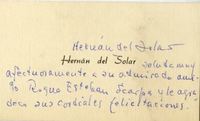 Hernán del Solar
Hernán del Solar saluda muy
afectuosamente a su admirado ami-
go Roque Esteban Scarpa y le agra-
dece sus cordiales felicitaciones.